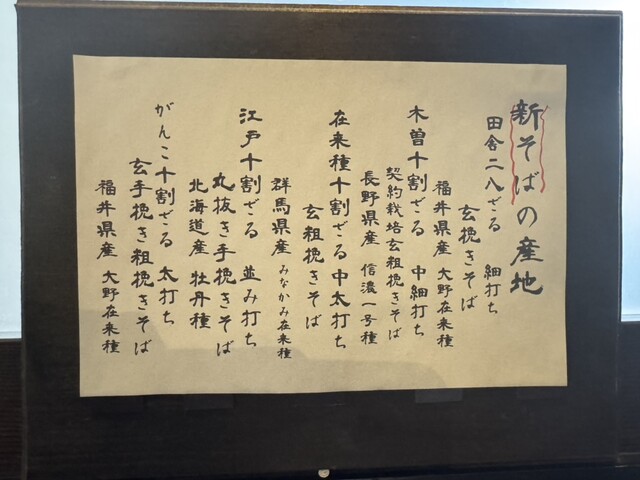 新そばの産地
田舎二八ざる 細打ち
玄挽きそば
福井県産 大野在来種
木曽十割ざる 中細打ち
契約栽培玄粗挽きそば
長野県産 信濃一号種
在来種十割ざる 中太打ち
玄粗挽きそば
群馬県産 みなかみ在来種
江戸十割ざる 並み打ち
丸抜き手挽きそば
北海道産 牡丹種
がんこ十割ざる 太打ち
玄手挽き粗挽きそば
福井県産 大野在来種